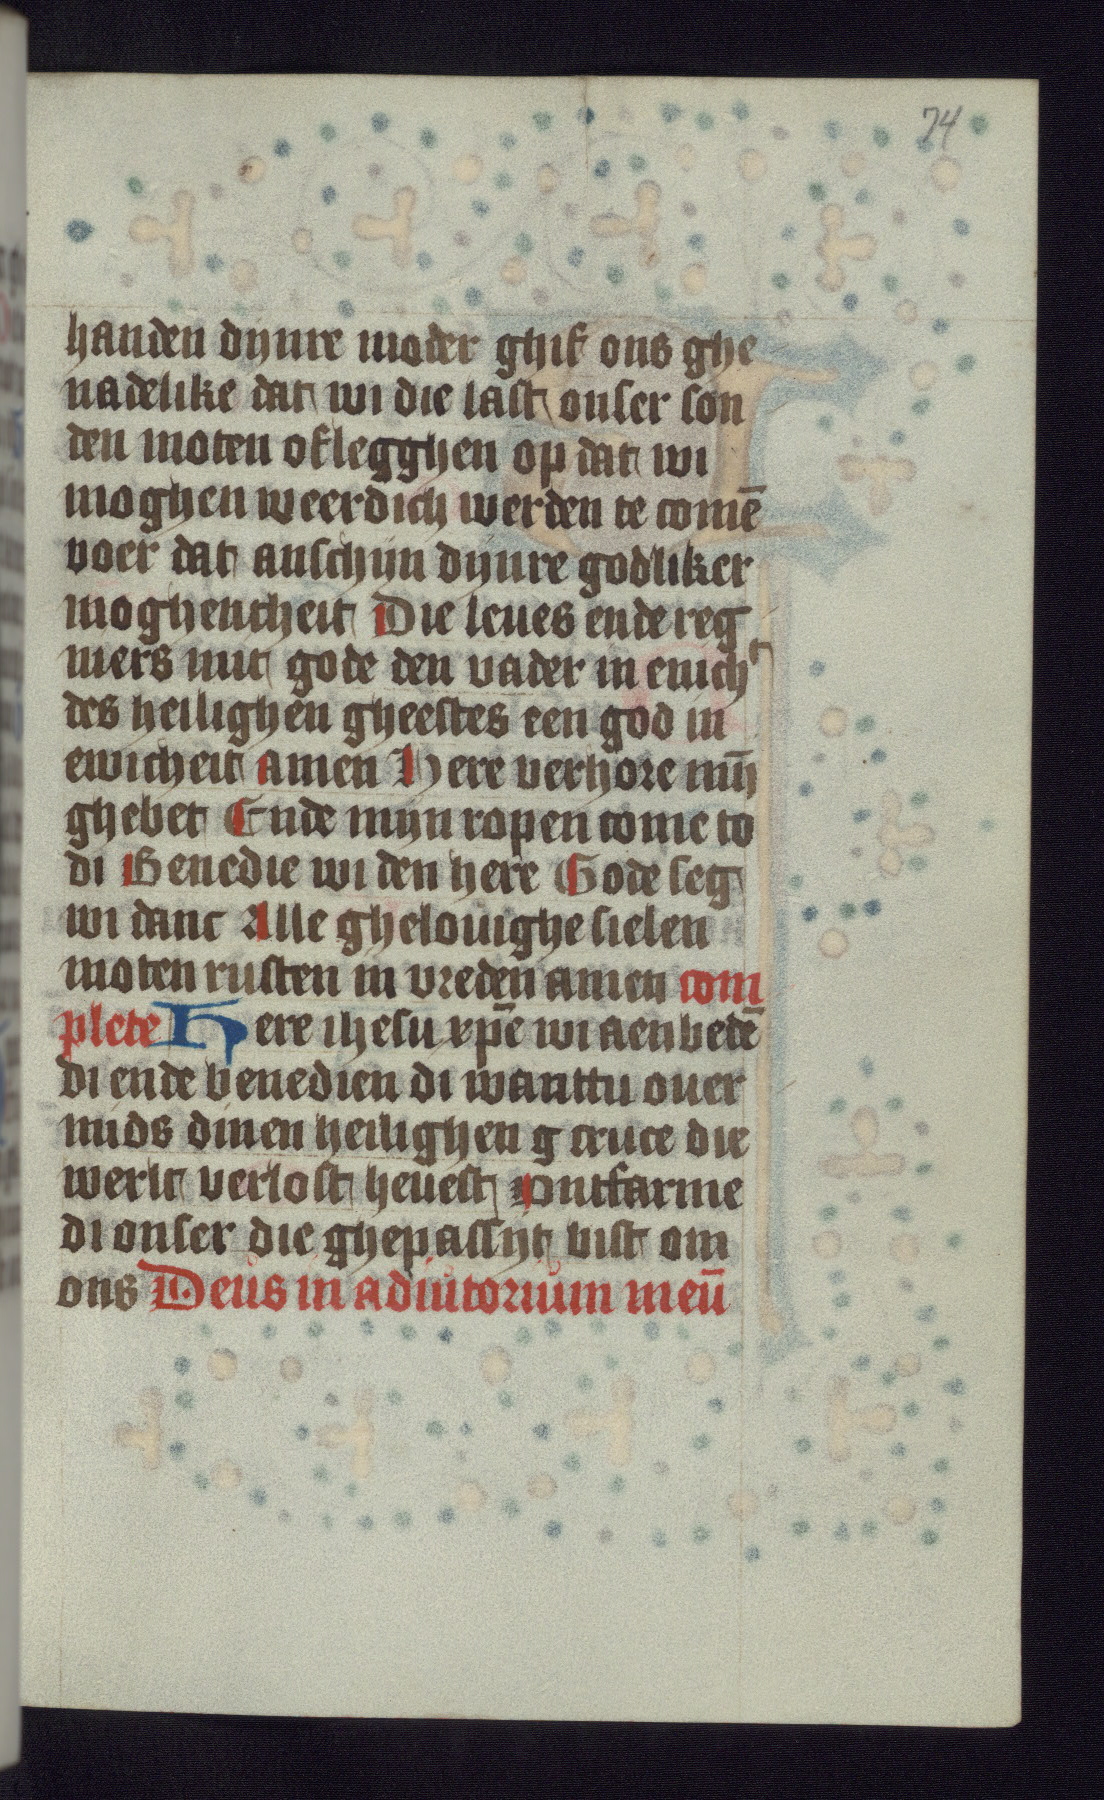 74
handen dijnre moder ghif ons ghe
nadelike dat wi die last onser son
den moten oflegghen op dat wi
moghen weerdich werden te comē
voer dat anschijn dijnre godliker
moghentheit Die leues ende reg
niers mit gode den vader in enich^t
des heilighen gheestes een god in
ewicheit amen Here verhore mīj
ghebet Ende mijn ropen come to
di Benedie wi den here Gode seg
wi danc Alle ghelouighe sielen
moten rusten in vreden amen com
plete Here ihesu xpē wi aenbedē
di ende benedien di wanttu ouer
mids dinen heilighen g cruce die
werlt verlost heuest Ontfarme
di onser die ghepassijt bist om
ons Deus in adiutorium meū